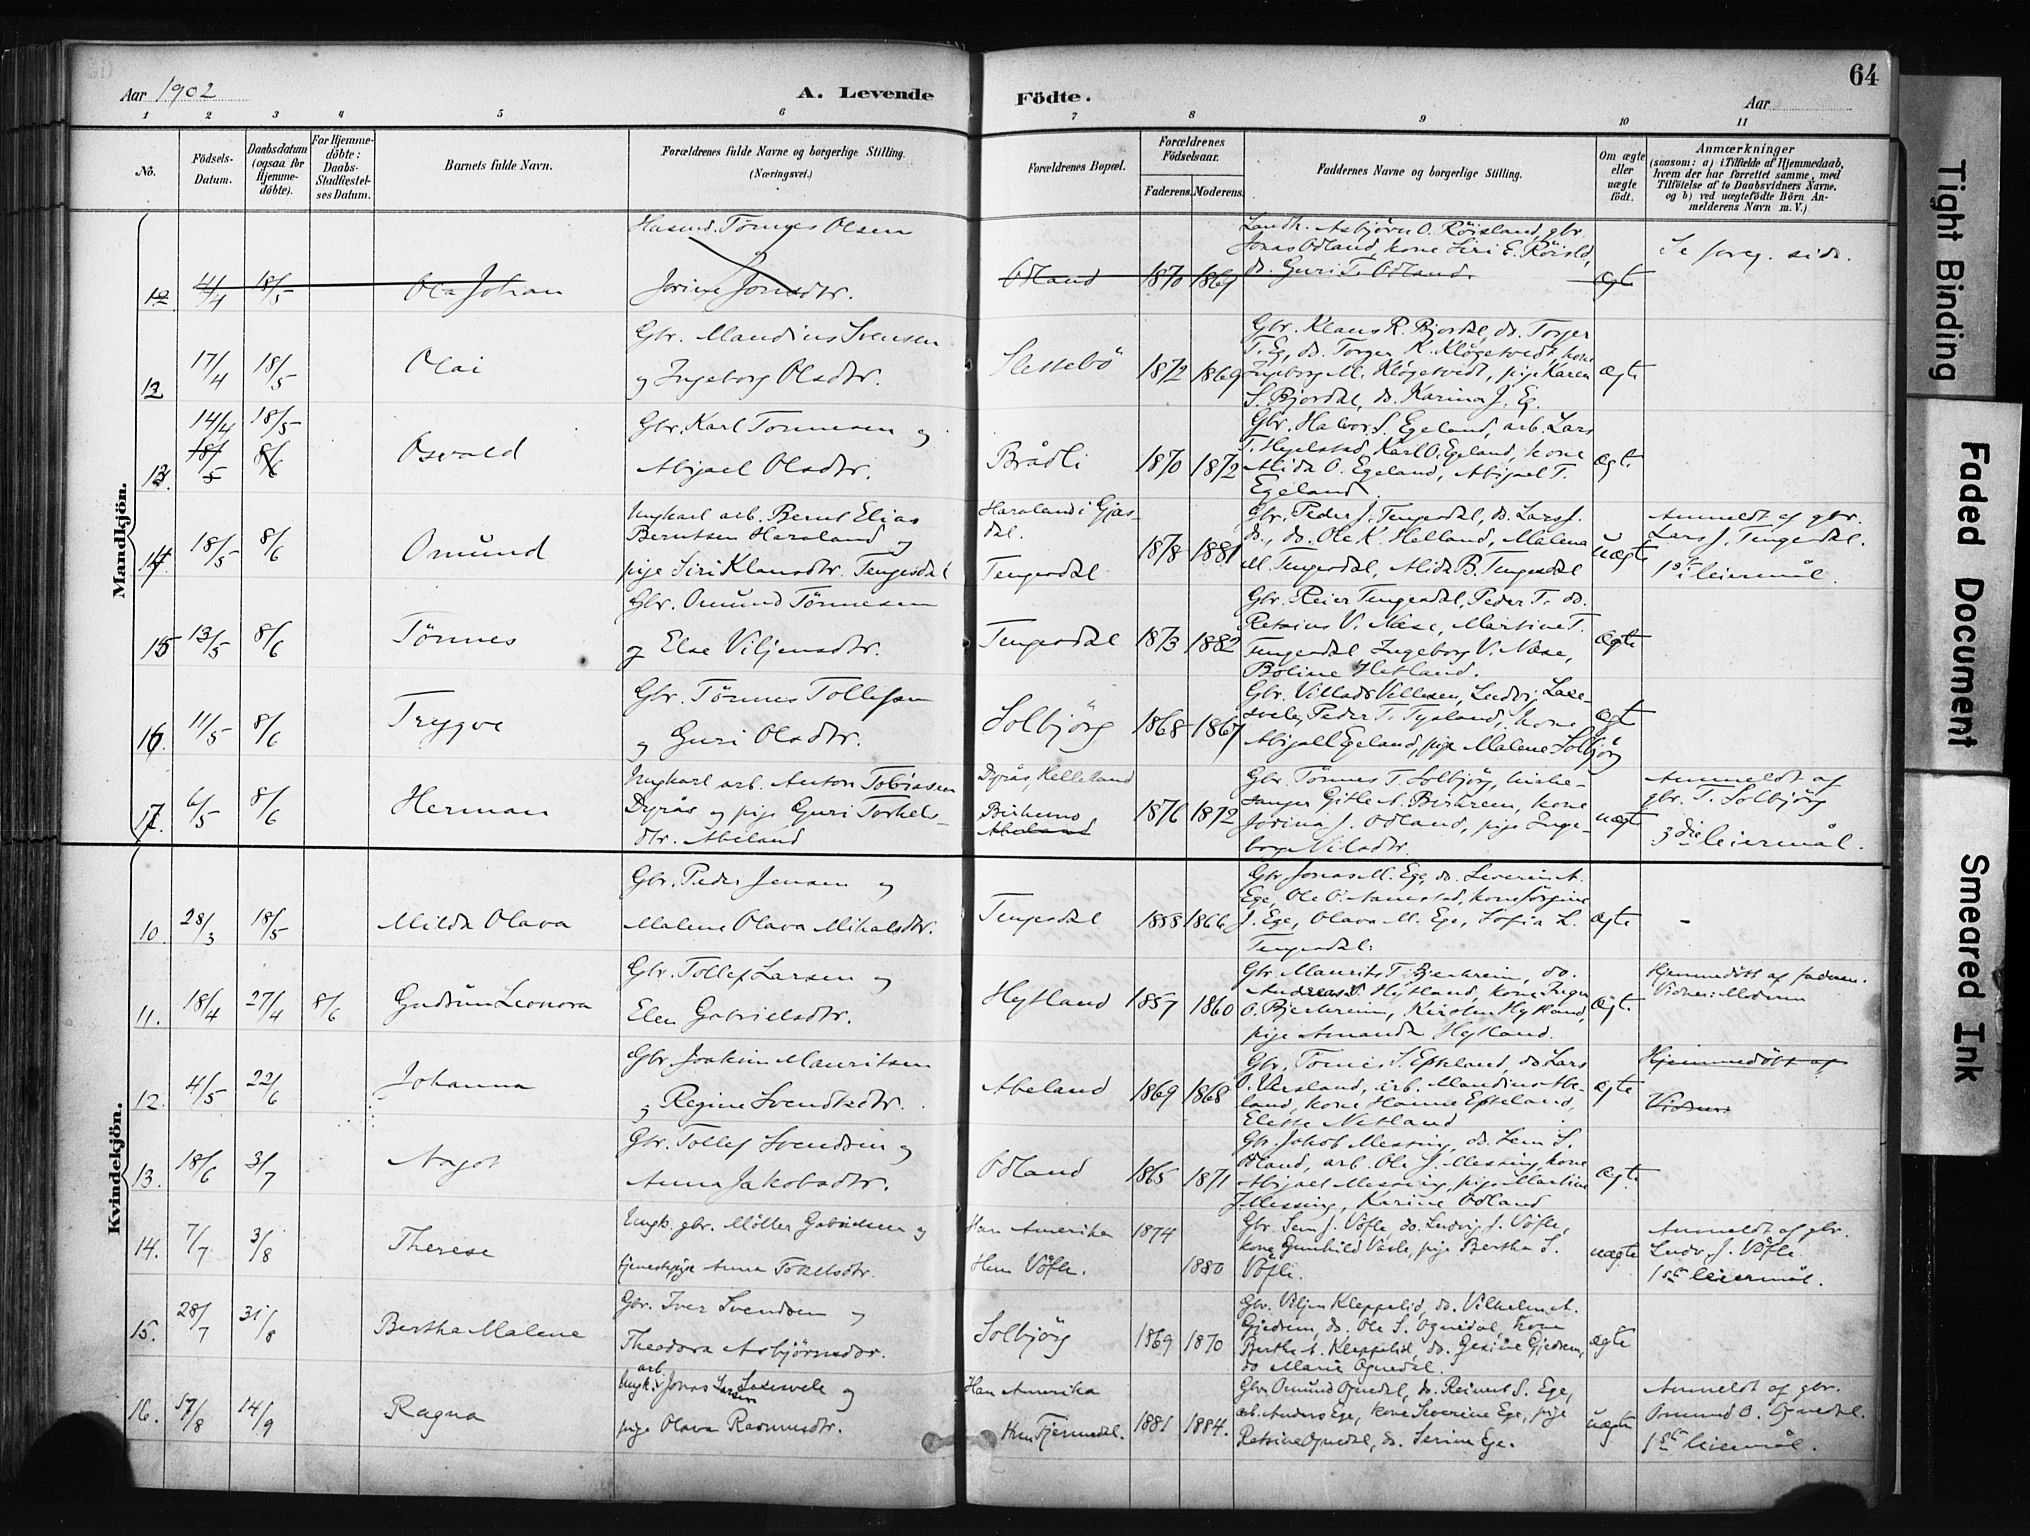 Aar 1902
A. Levende
Födte.
Aar
64
1 2 3 4 5 6 7 8 9 10 11
No.
Födsels-Datum.
Daabsdatum (ogsaa for Hjemme-döbte).
For Hjemme-döbte: Daabs-Stadfæstel-ses Datum.
Barnets fulde Navn.
Forældrenes fulde Navne og borgerlige Stilling.
(Næringsvei.)
Forældrenes Bopæl.
Forældrenes Födselsaar.
Faderens. Moderens.
Faddernes Navne og borgerlige Stilling.
Om ægte eller uægte födt.
Anmærkninger
(saasom: a) i Tilfælde af Hjemmedaab,
hvem der har forrettet samme, med
Tilföielse af to Daabsvidners Navne,
og b) ved uægtefödte Börn An-
melderens Navn m. V.)
Mandkjön.
12 4/4 18/5 Ola Johan
Husmd. Tønnes Olsen
Jorine Jonsdtr.
Odland 1870 1869
Landh. Asbjørn O. Röisland, gbr.
Jonas Odland, kone Siri E. Röisld,
do. Guri T. Odland.
ægte
Se foreg. side.
12 17/4 18/5 Olai
Gbr. Mandius Svensen
og Ingeborg Olsdtr.
Slettebö 1872 1869
Gbr. Klaus R. Bjordal, do. Torger
T. Eg, do. Torger K. Kløgetvedt, kone
Ingeborg M. Kløgetvedt, pige Karen
S. Bjordal, do. Karina J. Eg.
ægte
13. 14/4 18/5 18/5 8/6 Osvald
Gbr. Karl Tønnesen og
Abijael Olsdtr.
Brådli 1870 1872
Gbr. Halvor S. Egeland, arb. Lars
T. Hegelstad, Karl O. Egeland, kone
Alida O. Egeland, Abijael T.
Egeland.
ægte
14. 18/5 8/6 Omund
Ungkarl arb. Bernt Elias
Berntsen Haraland og
pige Siri Klausdtr. Tengesdal
Haraland i Gjes-
dal.
Tengesdal 1878 1881
Gbr. Peder J. Tengesdal, do. Lars J.
do., do. Ole K. Helland, Malena
M. Tengesdal, Alida B. Tengesdal
uægte
Anmeldt af gbr.
Lars J. Tengesdal.
1ste leiermål.
15 13/5 8/6 Tönnes
Gbr. Omund Tönnesen
og Else Viljemsdtr.
Tengesdal 1873 1882
Gbr. Reier Tengesdal, Peder T. do.
Retsius V. Næse, Martine T.
Tengesdal Ingeborg V. Næse,
Boline Hetland.
ægte
16. 11/5 8/6 Trygve
Gbr. Tönnes Tollefsen
og Guri Olsdtr.
Solbjörg 1868 1867
Gbr. Villads Villesen, Ludv. Lake-
svele, Peder T. Tysland, kone
Abigail Egeland, pige Malene Solbjörg
ægte
17. 6/5 8/6 Herman
Ungkarl arb. Anton Tobiasen
Dyrås og pige Guri Torkels-
dtr. Abeland
Dyrås, Helleland
Birkemo
Abeland 1876 1872
Gbr. Tönnes T. Solbjörg, kirke-
sanger Gitle A. Birkrem, kone
Jorina J. Odland, pige Inge-
borg Nilsdtr.
uægte
Anmeldt af
gbr. T. Solbjörg
3die leiermål.
Kvindekjön.
10. 28/3 18/5 Milda Olava
Gbr. Peder Jensen og
Malene Olava Mikalsdtr.
Tengesdal 1858 1866
Gbr. Jonas M. Ege, do. Severin A.
Ege, Ole O. Aanestad, kone Jörgine
J. Ege, Olava M. Ege, Sofia L.
Tengesdal.
ægte
11. 18/4 27/4 8/6 Gudrun Leonora
Gbr. Tollef Larsen og
Elen Gabrielsdtr.
Hytland 1857 1860
Gbr. Maurits T. Bjerkreim, do.
Andreas V. Hytland, kone Inger
O. Bjerkreim, Kirsten Hytland,
pige Amanda Hytland.
ægte
Hjemmedöbt af faderen.
Vidner: Modren
12. 4/5 22/6 Johanna
Gbr. Joakim Mauritsen
og Regine Svendsdtr.
Abeland 1869 1868
Gbr. Tomis S. Eskeland, do. Lars
O. Ursland, arb. Mandius Abe-
land, kone Hanne Eskeland,
Elette Netland
ægte
Hjemmedöbt af
Vidner:
13. 18/6 3/7 Nagot
Gbr. Tollef Svendsen og
Anna Jakobsdtr.
Odland 1865 1871
Gbr. Jakob Messing, do. Sem S.
Odland, arb. Ole J. Messing, kone
Abijael Messing, pige Martine
J. Messing, Karine Odland
ægte
14. 7/7 3/8 Therese
Ungk. gbr. Möller Gabrielsen og
tjenestepige Anna Tokelsdtr.
Han Amerika 1874
Hun Vöfle. 1880
Gbr. Sem J. Vöfle, do. Ludvig J. Vöfle,
kone Gunhild Vasle, pige Bertha S.
Vöfle.
uægte
Anmeldt af gbr.
Ludv. J. Vöfle.
1ste leiermål.
15. 28/7 31/8 Bertha Malene
Gbr. Iver Svendsen og
Theodora Asbjörnsdtr.
Solbjörg 1869 1870
Gbr. Viljen Kleppelid, do. Vilhelm A.
Gjedrem, do. Ole S. Ognedal, kone
Berthe A. Kleppelid, do. Gesine Gjedrem,
do Marie Ognedal.
ægte
16. 17/8 14/9 Ragna
Ungk. arb. Jonas Larsen Laksesvele og
pige Olava Rasmusdtr.
Han Amerika
Hun Tjernedal. 1881 1884.
Gbr. Omund Ognedal, do. Reinert S. Ege,
arb. Anders Ege, kone Severine Ege, pige
Retsine Ognedal, do. Serine Ege.
uægte
Anmeldt af gbr.
Omund O. Ognedal.
1ste leiermål.
Tight Binding
Faded Document
Smeared Ink